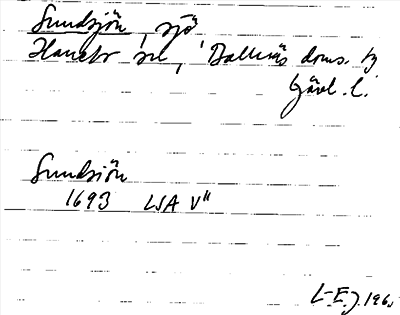 Sundsjön, sjö
Hanebo sn, Bollnäs doms. tg
Gävl. l.
Sundsiön
1693 LSA V"
L-E.J. 196